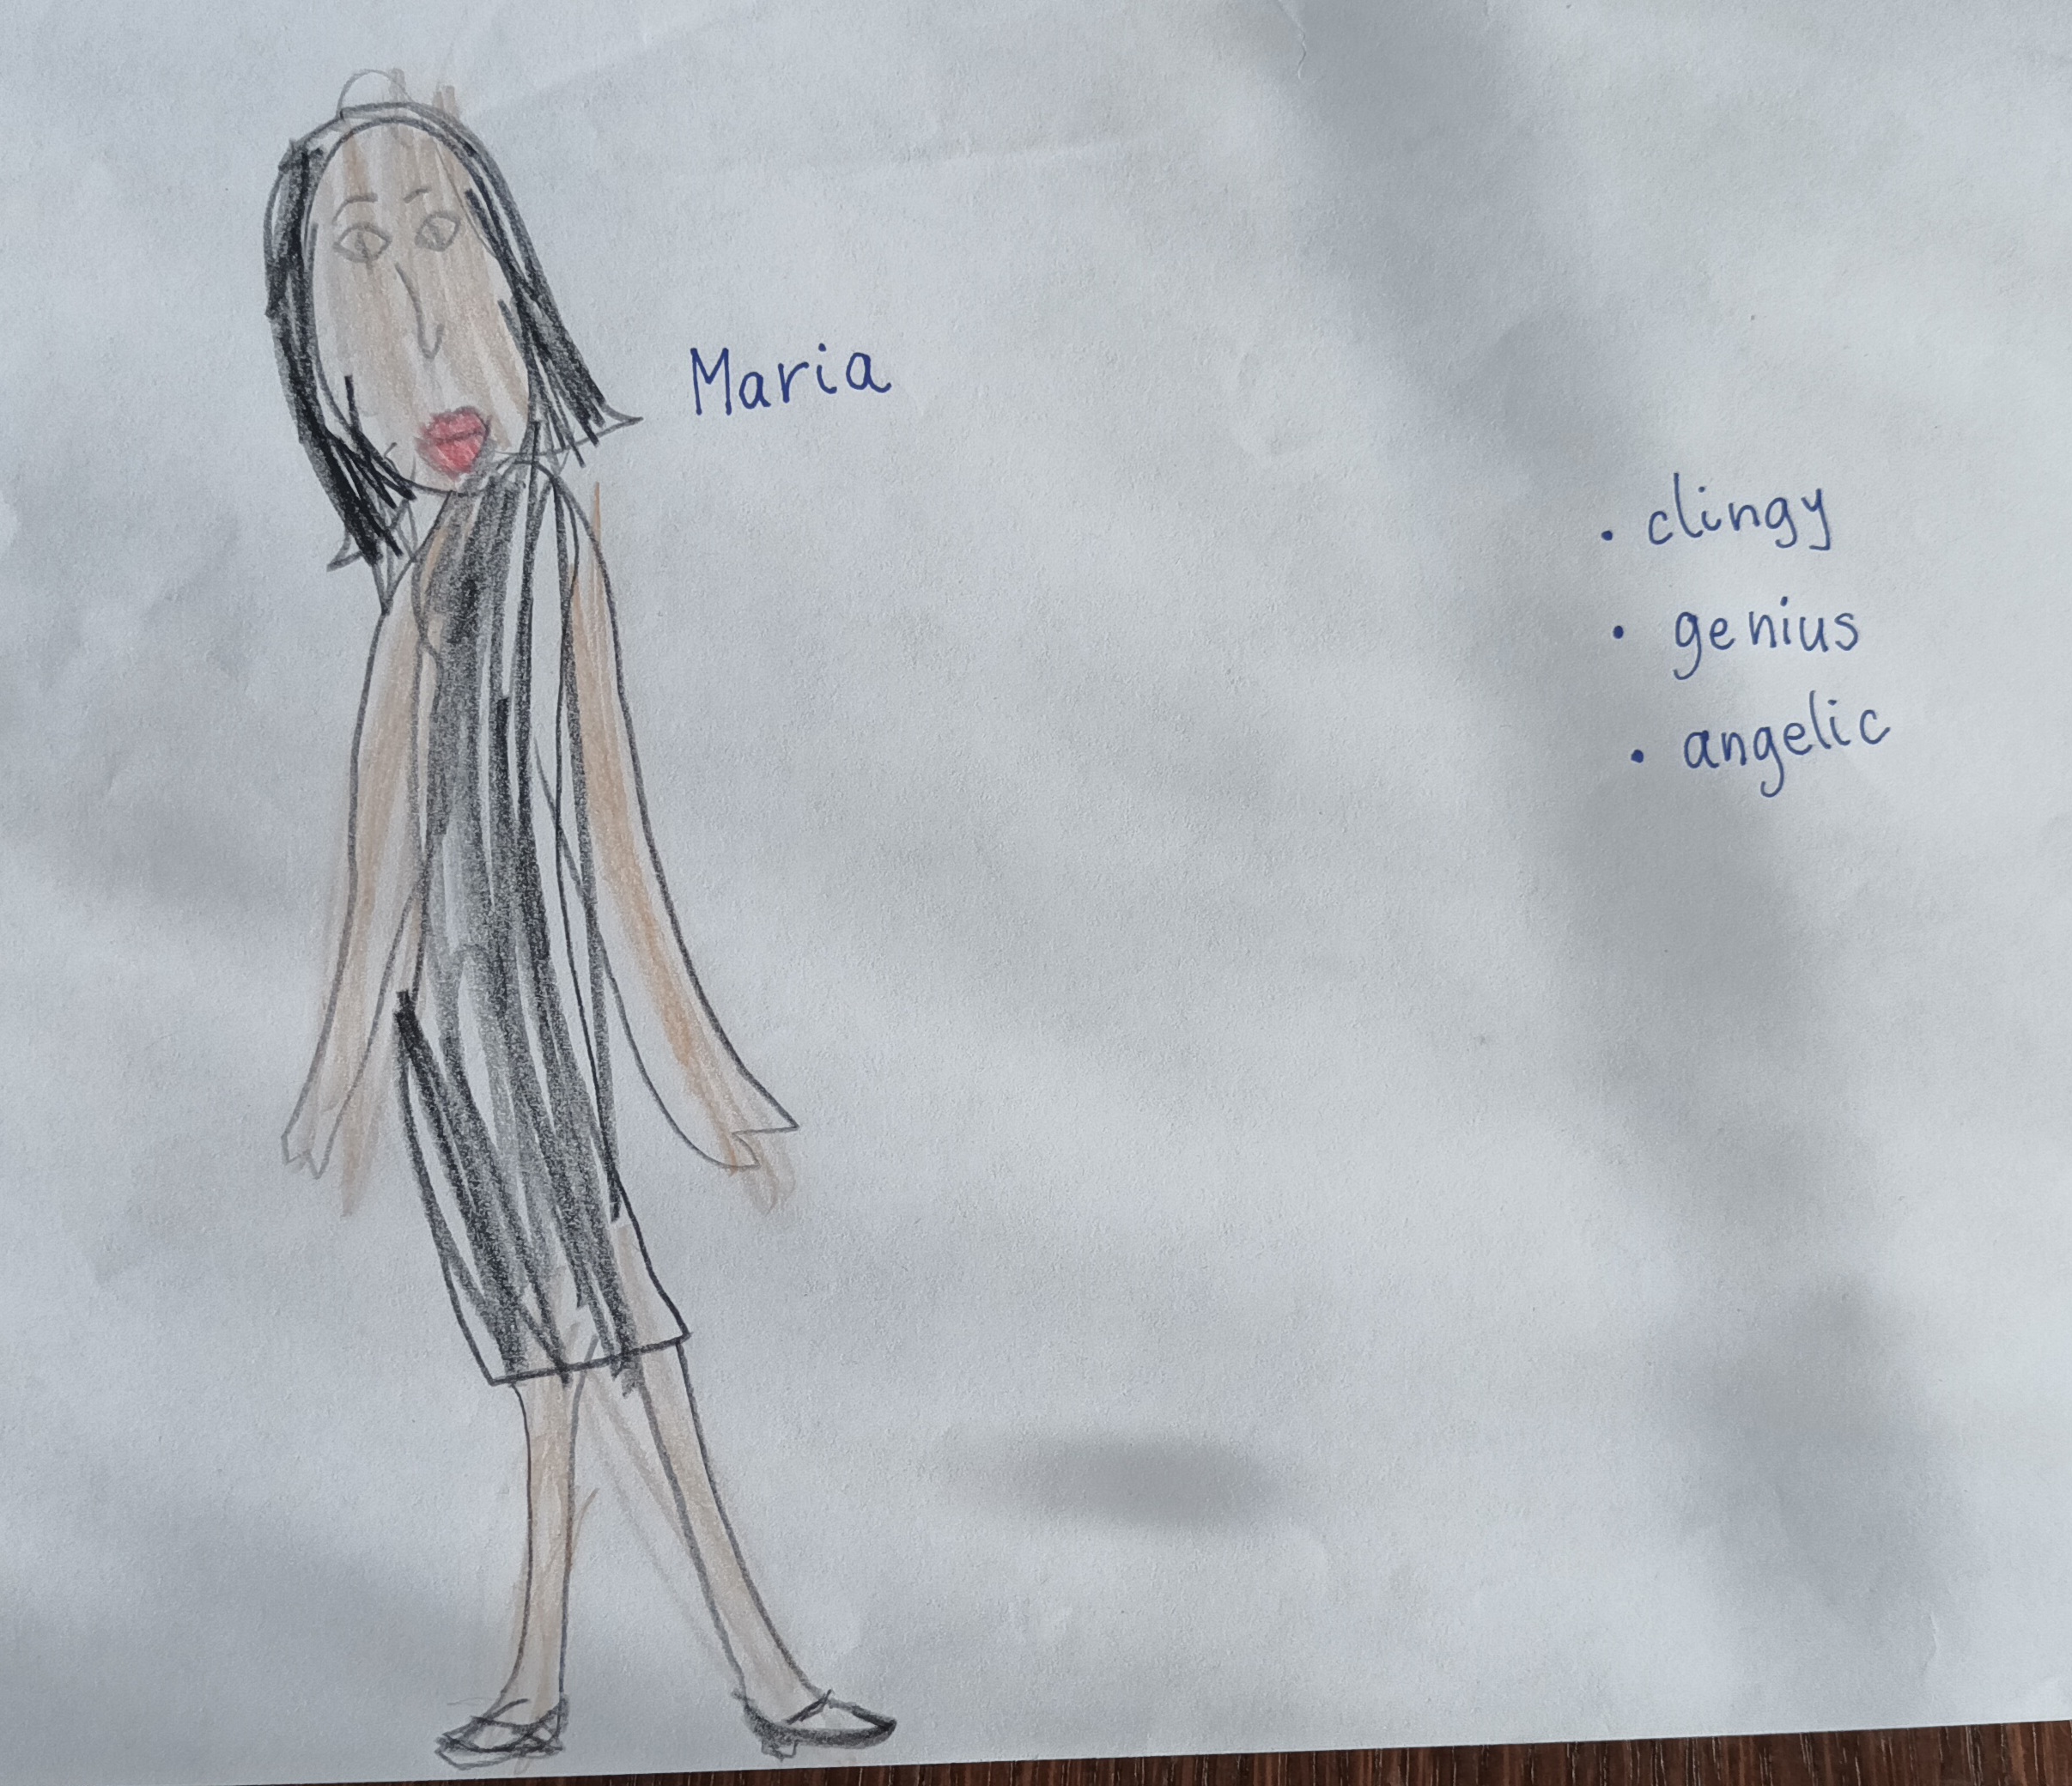 Maria
• clingy
• genius
• angelic